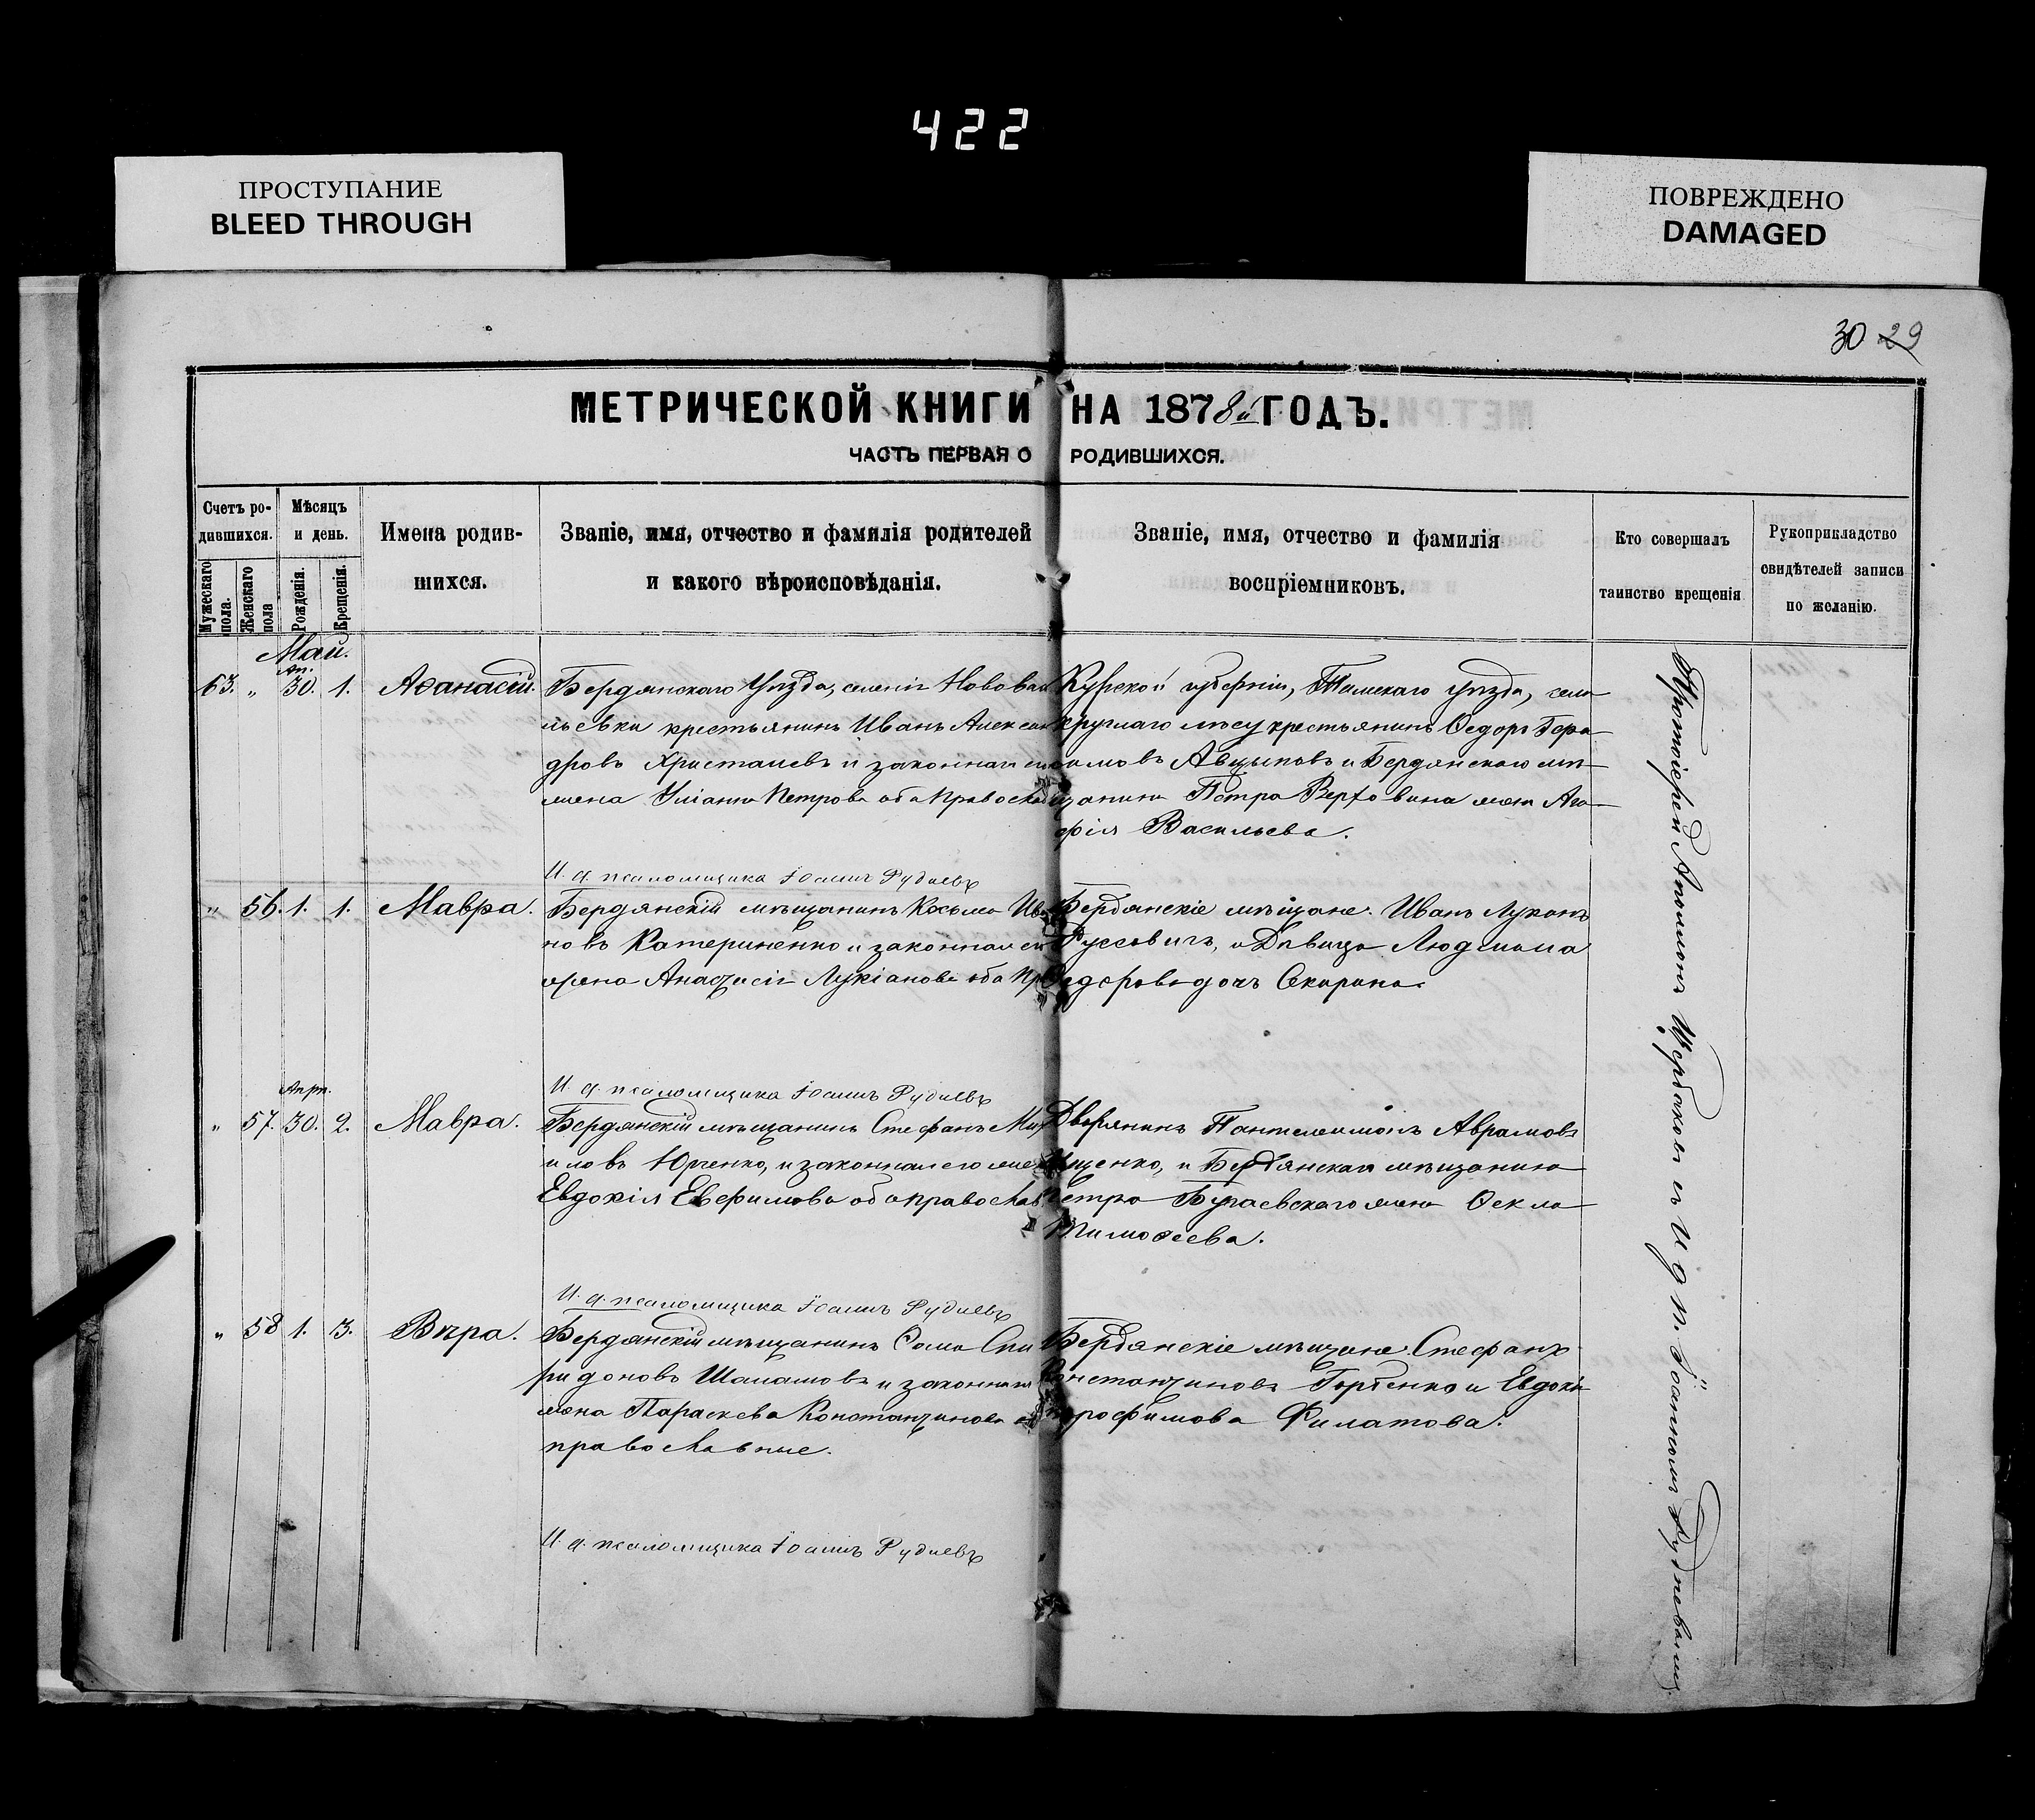 422
ПРОСТУПАНИЕ
BLEED THROUGH
ПОВРЕЖДЕНО
DAMAGED
30 29
МЕТРИЧЕСКОЙ КНИГИ НА 1878й ГОДЪ.
ЧАСТЬ ПЕРВАЯ О РОДИВШИХСЯ.
Счетъ родившихся.
Мужескаго пола.
Женскаго пола
Мѣсяцъ и день.
Рожденія.
Крещенія.
Имена родившихся.
Званіе, имя, отчество и фамилія родителей
и какого вѣроисповѣданія.
Званіе, имя, отчество и фамилія
воспріемниковъ.
Кто совершалъ
таинство крещенія
Рукоприкладство
свидѣтелей записи
по желанію.
Май.
Ап.
63. " 30. 1. Аѳанасій.
Бердянскаго Уѣзда, селенія Новова
льевки крестьянинъ Иванъ Алексан
дровъ Христаевъ и законная
жена Уліанна Петрова оба Правосла
Курской губерніи, Тимскаго уѣзда, села
круглаго лѣсу крестьянинъ Ѳедоръ Гера
симовъ Авцыновъ и Бердянскаго мѣ
щанина Петра Верховина жена Ага
фія Васильева.
И. д. псаломщика Іоаннъ Рудневъ
" 56. 1. 1. Мавра.
Бердянскій мѣщанинъ Косьма Ива
новъ Катериненко и законная его
жена Анастасія Лукіанова оба Пр
Бердянскіе мѣщане: Иванъ Лукинъ
Руссовичъ, и Дѣвица Людмила
Ѳедорова дочь Скирина.
И. д. псаломщика Іоаннъ Рудневъ
Апрѣ.
" 57. 30. 2. Мавра.
Бердянскій мѣщанинъ Стефанъ Миха
иловъ Юрченко, и законная его жена
Евдокія Евфимова оба православ
Дворянинъ Пантелеимонъ Аврамовъ
Ищенко, и Бердянскаго мѣщанина
Петра Бугаевскаго жена Ѳекла
Тимоѳеева.
И. д. псаломщика Іоаннъ Рудневъ
" 58 1. 3. Вѣра.
Бердянскій мѣщанинъ Ѳома Спи
ридоновъ Шаламовъ и законная
жена Параскева Константинова об
православные.
Бердянскіе мѣщане Стефанъ
Константиновъ Горбенко и Евдокія
Трофимова Филатова.
И. д. псаломщика Іоаннъ Рудневъ
Протоіерей Аполлонъ Щербаковъ съ И д п. Іоанномъ Рудневымъ.